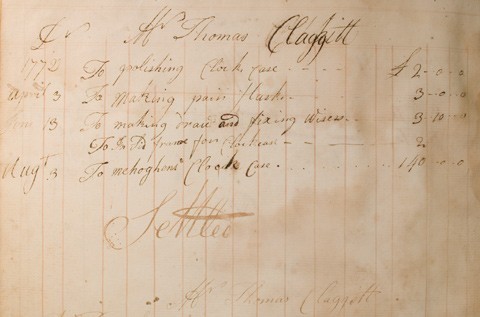 Dr Mr Thomas Claggitt
1772 To polishing Clock case £ 2-0-0
April 3 To Making pair 3-0-0
13 To making and fixing Wires 3-10-0
To frame for 2
Augt 3 To mehogheni Clock Case 40-0-0
Settled
Mr Thomas Claggitt